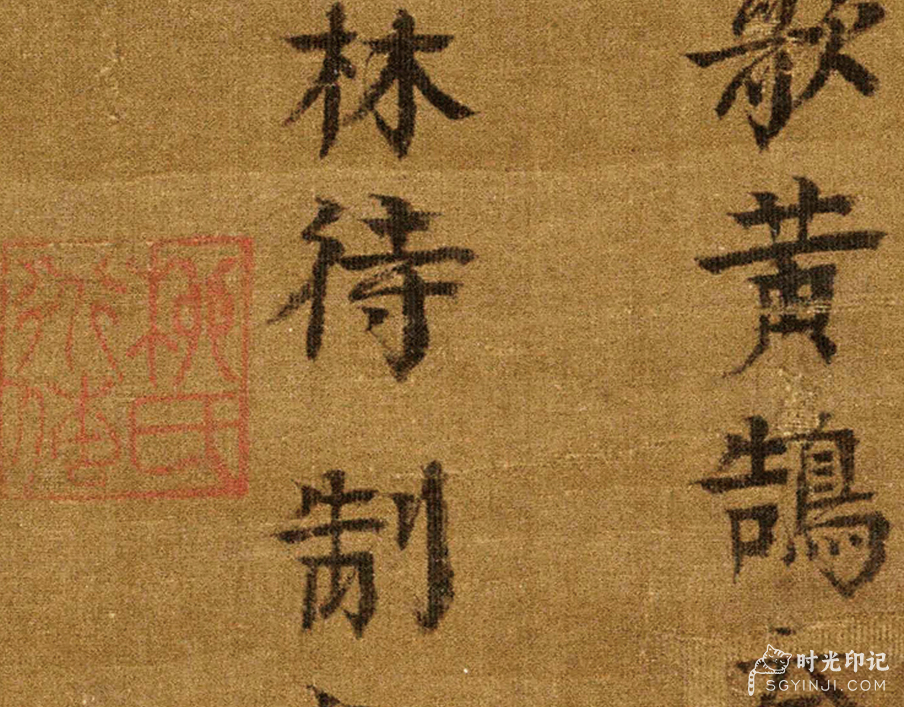 歌黄鵠
林待制
时光印记
SGYINJI.COM